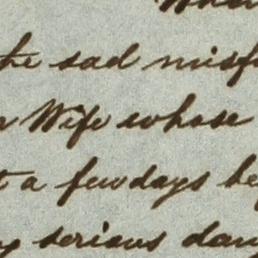 the sad misf
Wife whose
t a few days be
serious dan